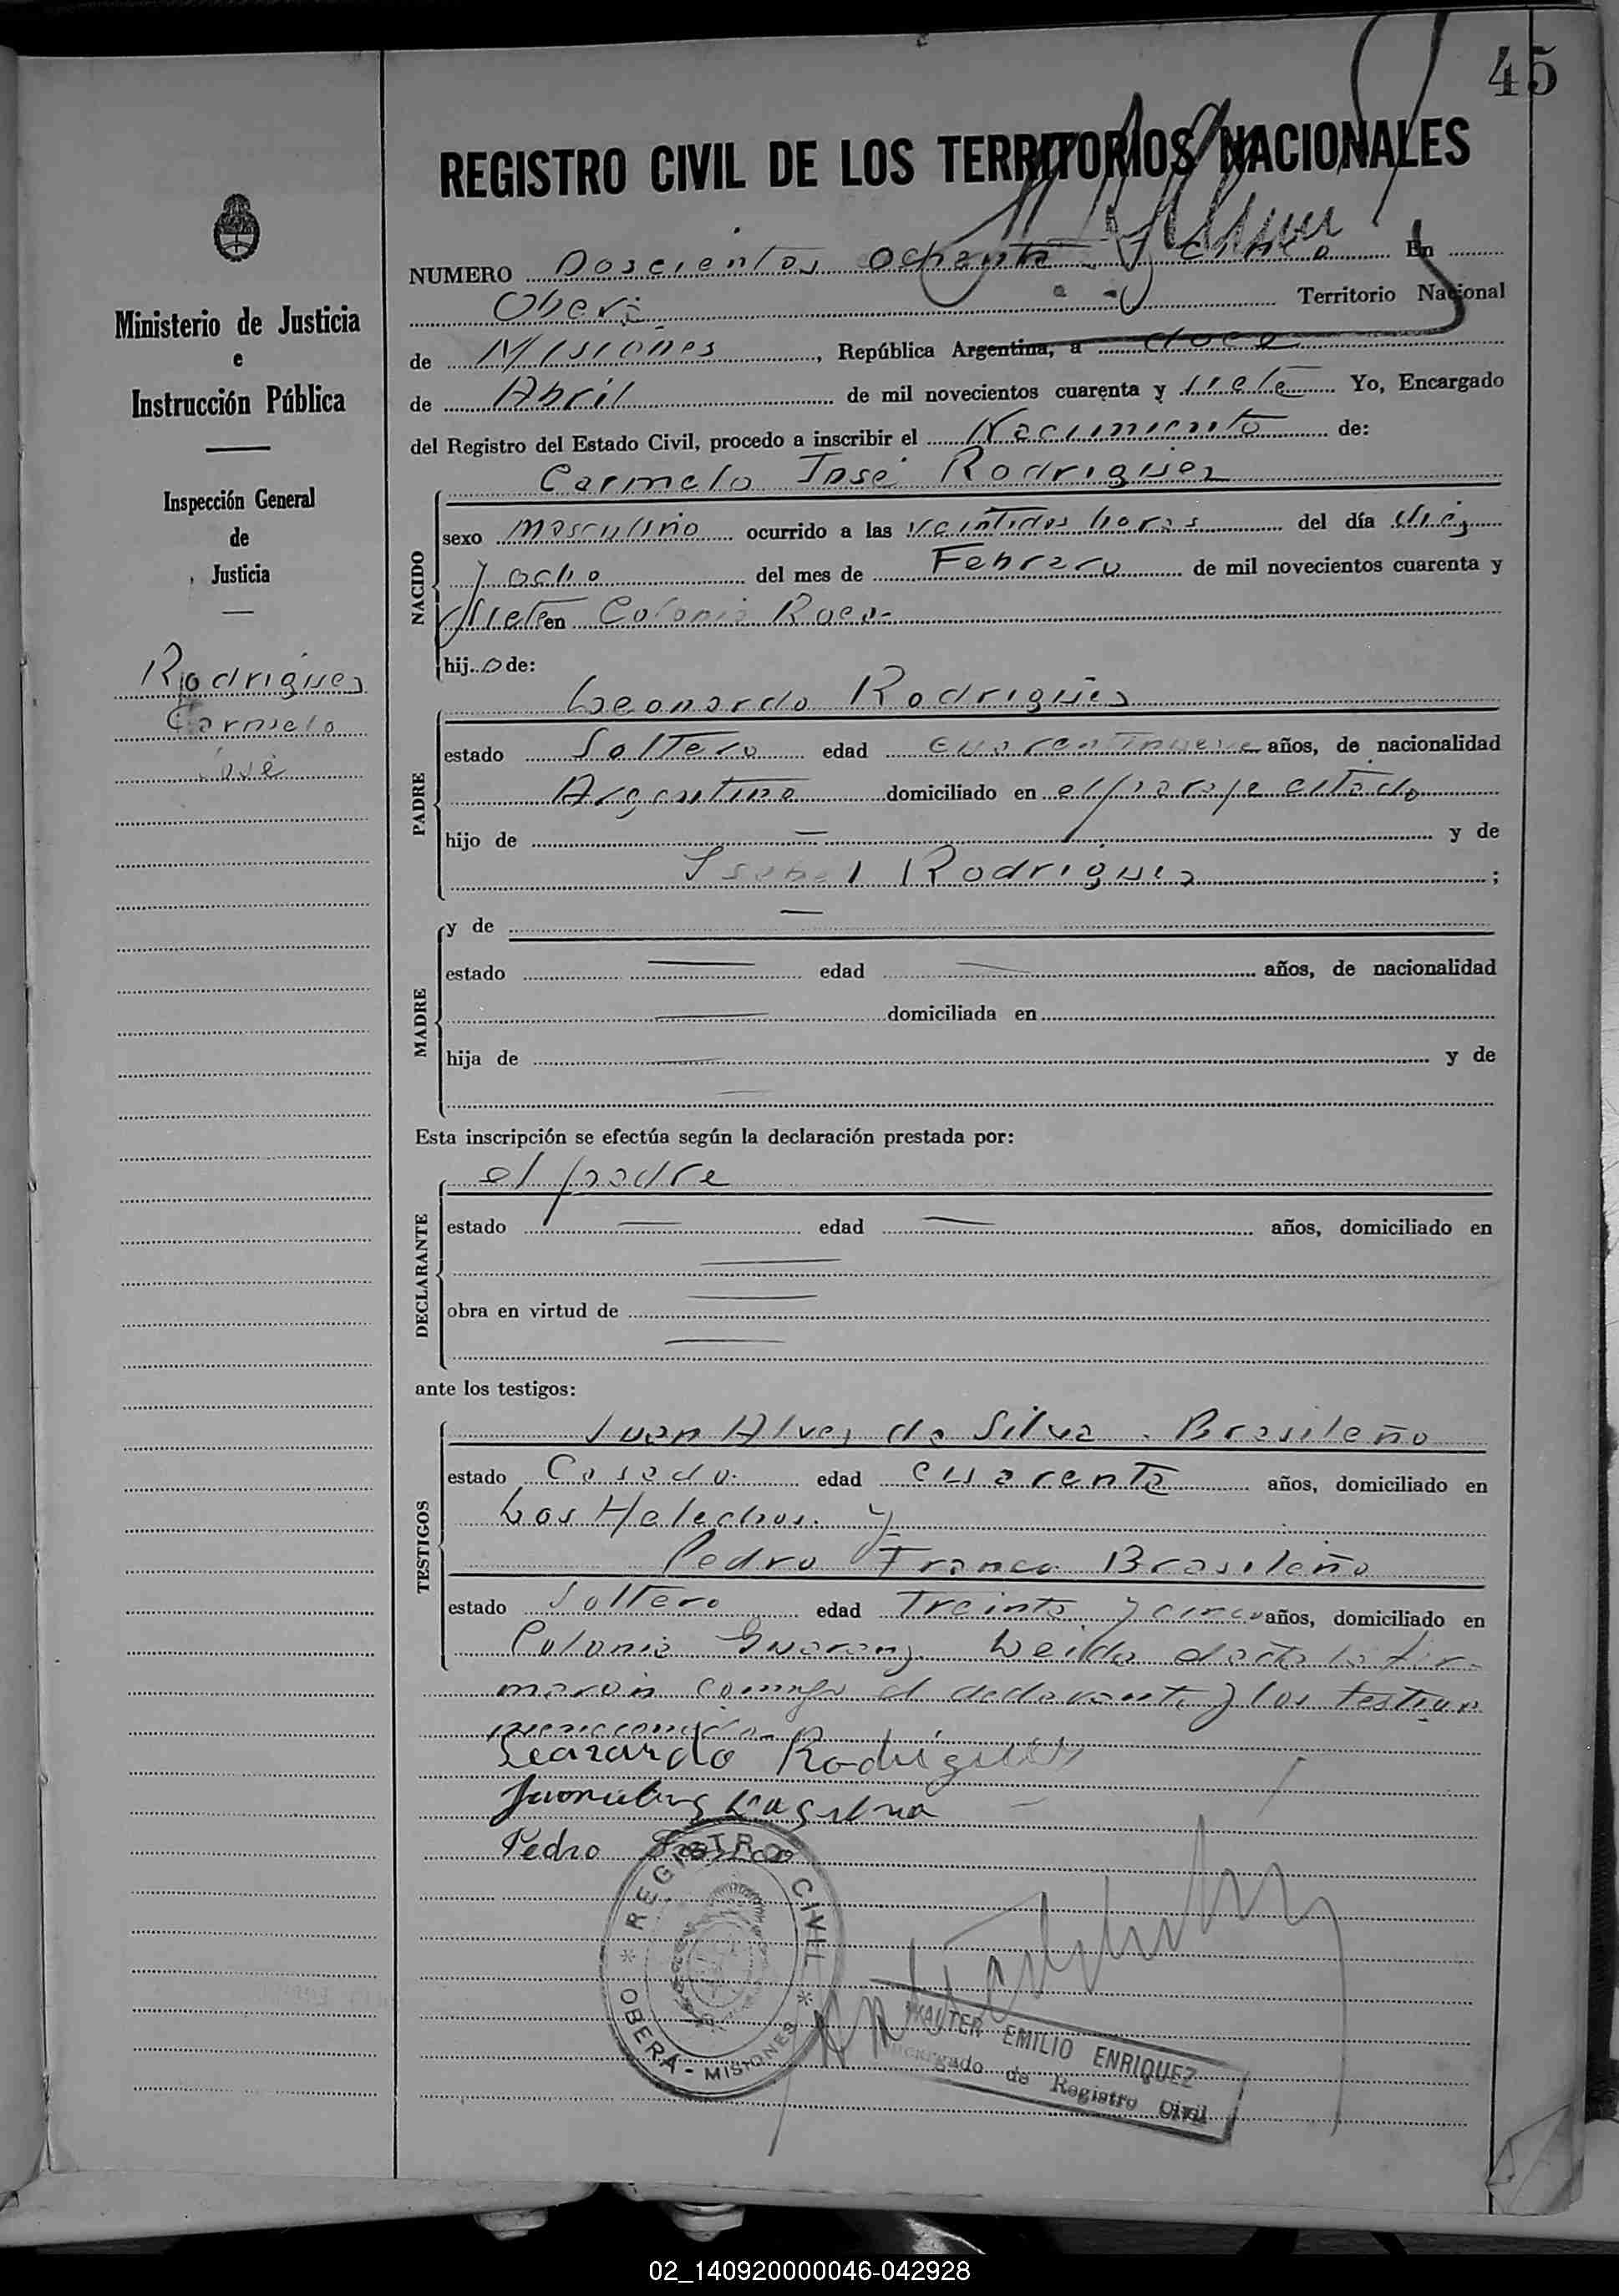 45
REGISTRO CIVIL DE LOS TERRITORIOS NACIONALES
NUMERO Doscientos Ochenta y cinco En
Oberá Territorio Nacional
de Misiones, República Argentina, a doce
de Abril de mil novecientos cuarenta y siete Yo, Encargado
del Registro del Estado Civil, procedo a inscribir el Nacimiento de:
Carmelo José Rodriguez
sexo masculino ocurrido a las veintidos horas del día diez
y ocho del mes de Febrero de mil novecientos cuarenta y
siete en Colonia Roca
hijo de:
NACIDO
Leonardo Rodriguez
estado Soltero edad cuarentinueve años, de nacionalidad
Argentina domiciliado en el paraje citado
hijo de — y de
Isabel Rodriguez ;
PADRE
y de —
estado — edad — años, de nacionalidad
— domiciliada en
hija de — y de
—
MADRE
Esta inscripción se efectúa según la declaración prestada por:
el padre
estado — edad — años, domiciliado en
—
obra en virtud de —
—
DECLARANTE
ante los testigos:
Juan Alves da Silva. Brasileño
estado Casado edad cuarenta años, domiciliado en
Los Helechos. y
Pedro Franco Brasileño
estado Soltero edad Treinta y cinco años, domiciliado en
Colonia Guarany. Leida el acta la fir-
maron conmigo el declarante y los testigos
mencionados
TESTIGOS
Leonardo Rodrigues
Silva
Pedro Franco
REGISTRO CIVIL
OBERÁ - MISIONES
WALTER EMILIO ENRIQUEZ
Encargado de Registro Civil
Ministerio de Justicia
e
Instrucción Pública
Inspección General
de
Justicia
Rodriguez
Carmelo
José
02_140920000046-042928